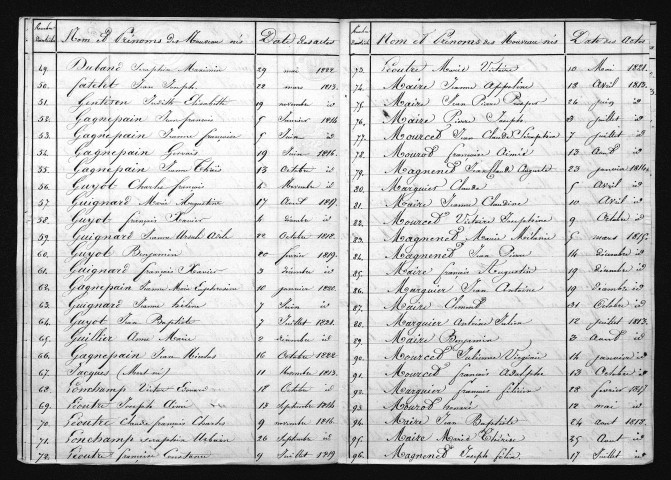 Nom et Prénoms des Nouveaux nés Date des actes
49. Duband Joseph Maximin 29 mai 1822.
50. Fatelet Jean Joseph 22 mars 1813.
51. Genticon Judith Elisabeth 19 novembre id
52. Gagnepain Jean françois 5 février 1814
53. Gagnepain Jeanne françoise 5 Juin id
54. Gagnepain Gervais 19 Juin 1816.
55. Gagnepain Jeanne Thérèse 13 Octobre id
56. Guyot Charles françois 4 Novembre id
57. Guignard Marie Augustine 17 Août 1817.
58. Guyot françois Xavier 4 décembre id
59. Guignard Jeanne Ursule Adèle 22 Octobre 1818.
60. Guyot Benjamin 20 février 1819.
61. Guignard françois Xavier 3 décembre id
62. Gagnepain Jeanne Marie Euphrasine 10 janvier 1820.
63. Guignard Jeanne 7 Juin id
64. Guyot Jean Baptiste 7 Juillet 1821.
65. Guillier Anne Marie 2 décembre id
66. Gagnepain Jean Nicolas 16 Octobre 1822
67. Jacques (Mort né) 11 Novembre 1813.
68. Lonchamp Victor 18 Octobre id
69. Lécutre Joseph 13 Septembre 1814
70. Lécutre Claude françois Charles 9 novembre 1816.
71. Lonchamp Séraphin Urbain 26 Septembre id
72. Lécutre françoise Constance 4 Juillet 1819
Nom et Prénoms des Nouveaux nés Date des Actes
73. Lécutre Marie Victoire 10 Mai 1821.
74. Maire Jeanne Appoline 18 Avril 1813.
75. Maire Jean Pierre Prosper 26 Juin id
76. Maire Pierre Joseph 3 Juillet id
77. Mourcet Jean Claude Séraphin 7 Juillet id
78. Mourot françoise Aimée 13 Août id
79. Magnenet Jean Claude Auguste 23 janvier 1814.
80. Marquier Claude 5 Avril id
81. Maire Jeanne Claudine 10 Avril id
82. Mourcet Victoire Joséphine 9 Octobre id
83. Magnenet Marie Mélanie 5 mars 1815.
84. Magnenet Jean Pierre 14 décembre id
85. Maire françois Augustin 19 décembre id
86. Marquier Jean Antoine 19 Décembre id
87. Maire Clément 31 Octobre id
88. Marquier Antoine Julien 12 juillet 1813.
89. Maire Benjamin 3 Août id
90. Mourcet Julienne Virginie 14 janvier id
91. Mourcet françois Adolphe 13 Octobre id
92. Marquier françois félicien 28 février 1817.
93. Mourot 12 mai id
94. Maire Jean Baptiste 24 Août 1818.
95. Maire Marie Thérèse 25 Août id
96. Magnenet Joseph félix 17 Juillet id